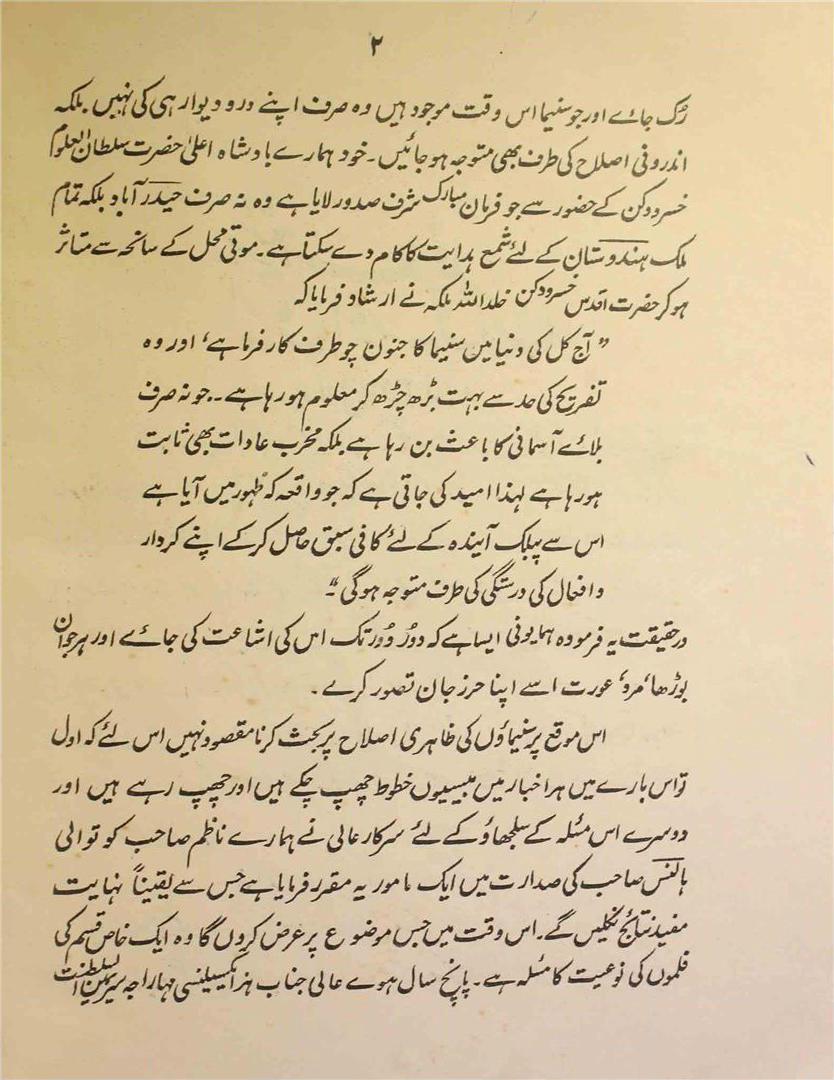 ۲
رُک جائے اور جو سنیما اس وقت موجود ہیں وہ صرف اپنے در و دیوار ہی کی نہیں بلکہ
اندرونی اصلاح کی طرف بھی متوجہ ہو جائیں۔ خود ہمارے بادشاہ اعلیٰ حضرت سلطان العلوم
خسرو دکن کے حضور سے جو فرمان مبارک شرف صدور لایا ہے وہ نہ صرف حیدرآباد بلکہ تمام
ملک ہندوستان کے لئے شمع ہدایت کا کام دے سکتا ہے۔ موتی محل کے سانحہ سے متاثر
ہو کر حضرت اقدس خسرو دکن خلد اللہ ملکہ نے ارشاد فرمایا کہ
” آج کل کی دنیا میں سنیما کا جنون چو طرف کار فرما ہے، اور وہ
تفریح کی حد سے بہت بڑھ چڑھ کر معلوم ہو رہا ہے۔ جو نہ صرف
بلائے آسمانی کا باعث بن رہا ہے بلکہ مخرب عادات بھی ثابت
ہو رہا ہے لہذا امید کی جاتی ہے کہ جو واقعہ کہ ظہور میں آیا ہے
اس سے پبلک آیندہ کے لئے کافی سبق حاصل کر کے اپنے کردار
و افعال کی درستگی کی طرف متوجہ ہو گی “۔
در حقیقت یہ فرمودہ ہمایونی ایسا ہے کہ دُور دُور تک اس کی اشاعت کی جائے اور ہر جوان
بوڑھا، مرد، عورت اسے اپنا حرز جان تصور کرے۔
اس موقع پر سنیماؤں کی ظاہری اصلاح پر بحث کرنا مقصود نہیں اس لئے کہ اول
تو اس بارے میں ہر اخبار میں بیسیوں خطوط چھپ چکے ہیں اور چھپ رہے ہیں اور
دوسرے اس مسئلہ کے سلجھاؤ کے لئے سرکار عالی نے ہمارے ناظم صاحب کوتوالی
ہالنس صاحب کی صدارت میں ایک ماموریہ مقرر فرمایا ہے جس سے یقیناً نہایت
مفید نتائج نکلیں گے۔ اس وقت میں جس موضوع پر عرض کروں گا وہ ایک خاص قسم کی
فلموں کی نوعیت کا مسئلہ ہے۔ پانچ سال ہوے عالی جناب ہز اکسیلنسی مہاراجہ سر یمین السلطنت